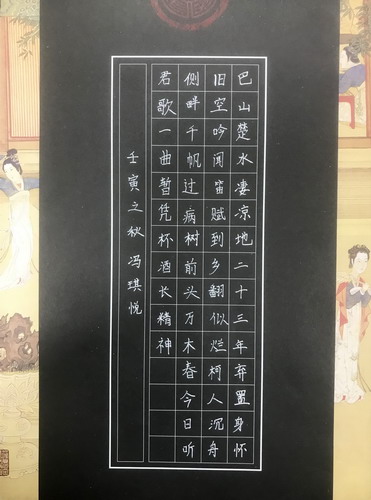 巴山楚水凄凉地二十三年弃置身怀
旧空吟闻笛赋到乡翻似烂柯人沉舟
侧畔千帆过病树前头万木春今日听
君歌一曲暂凭杯酒长精神
壬寅之秋 冯琪悦